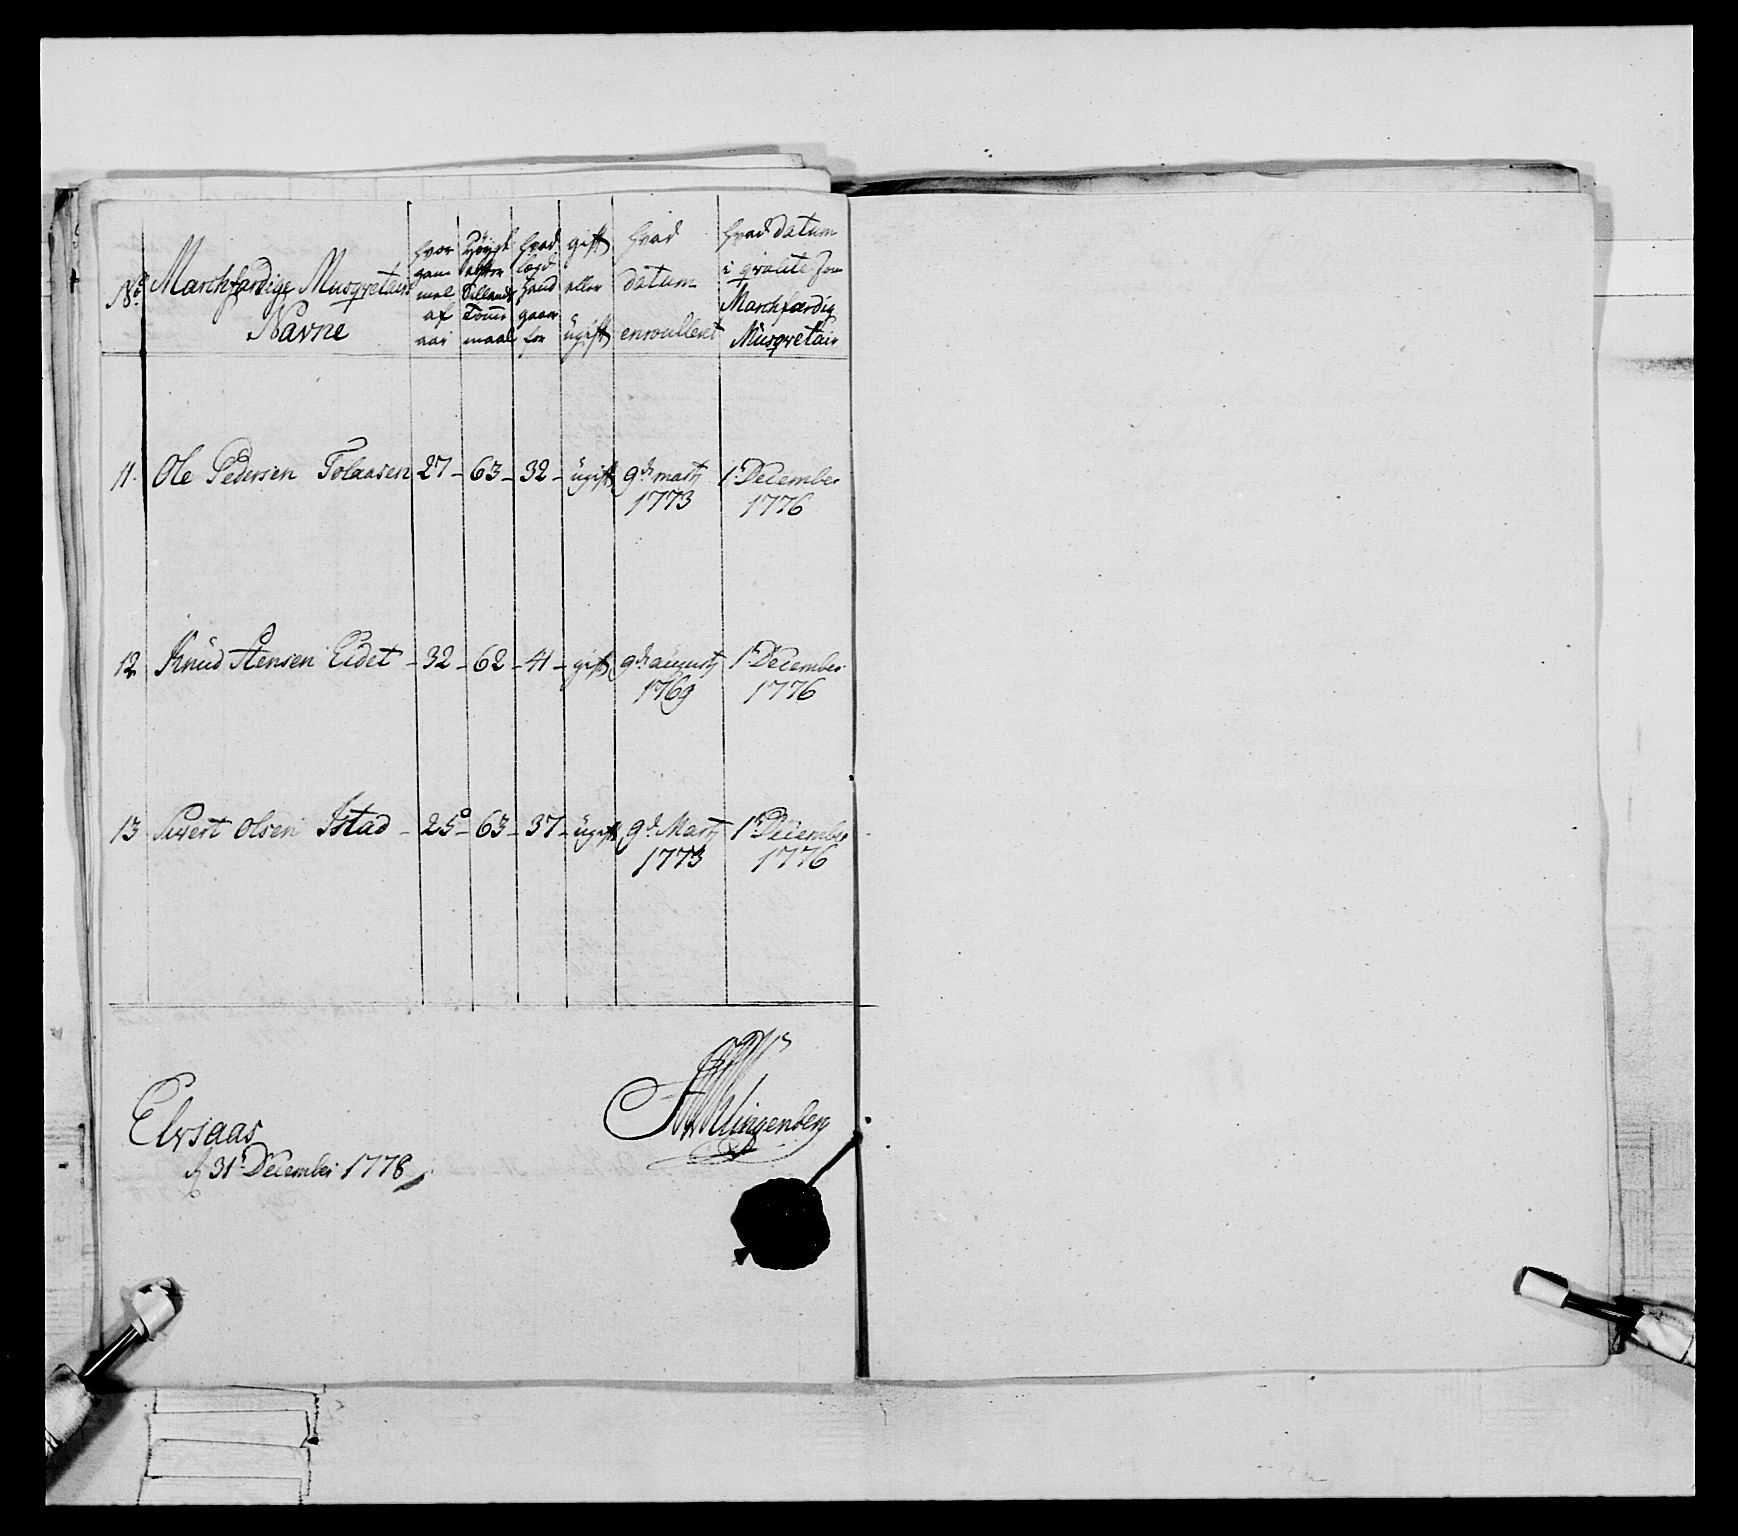 No. Marchfærdige Musqvetairs Navne
hvor gam mel af aar
Höyde efter Sællands Tomme maal
hvad lægd hand gaar for
gift eller ugift
hvad datum enroulleret
hvad datum i qvalite som Marchfærdig Musqvetair
11. Ole Pedersen Tolaasen 27 - 63 - 32 - ugift 9de. marty 1773 1t. December 1776
12 Knud Stensen Eidet - 32 - 62 - 41 - gift 9de. augusty 1769 1t. December 1776
13 Sivert Olsen Istad - 25 - 63 - 37 - ugift 9d. Marty 1773 1t. December 1776
Elvsaas
d 31t. December 1778
Klingenberg